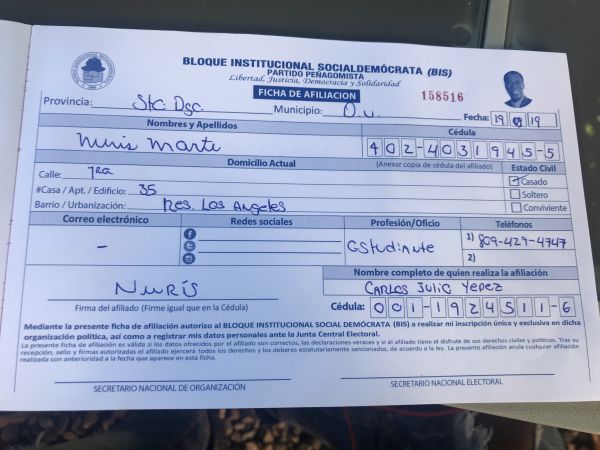 BLOQUE INSTITUCIONAL SOCIALDEMÓCRATA (BIS)
PARTIDO PEÑAGOMISTA
Libertad, Justicia, Democracia y Solidaridad
FICHA DE AFILIACION
158516
Provincia: Sto. Dgo. Municipio: D.N. Fecha: 19 08 19
Nombres y Apellidos Cédula
Nuris Marte 402-4031945-5
Domicilio Actual (Anexar copia de cédula del afiliado) Estado Civil
Calle: 7ra Casado
#Casa / Apt. / Edificio: 35 Soltero
Barrio / Urbanización: Res. Los Angeles Conviviente
Correo electrónico Redes sociales Profesión/Oficio Teléfonos
- Estudiante 1) 809-429-4747
2)
Nombre completo de quien realiza la afiliación
NURÍS CARLOS JULIO YEPEZ
Firma del afiliado (Firme igual que en la Cédula) Cédula: 001-1924511-6
Mediante la presente ficha de afiliación autorizo al BLOQUE INSTITUCIONAL SOCIAL DEMÓCRATA (BIS) a realizar mi inscripción única y exclusiva en dicha
organización política, así como a registrar mis datos personales ante la Junta Central Electoral.
La presente ficha de afiliación es válida si los datos ofrecidos por el afiliado son correctos, las declaraciones veraces y si el afiliado tiene el disfrute de sus derechos civiles y políticos. Tras su
recepción, sello y firmas autorizadas el afiliado ejercerá todos los derechos y los deberes estatutariamente sancionados, de acuerdo a la ley. La presente afiliación anula cualquier afiliación
realizada con anterioridad a la fecha que aparece en esta ficha.
SECRETARIO NACIONAL DE ORGANIZACIÓN SECRETARIO NACIONAL ELECTORAL